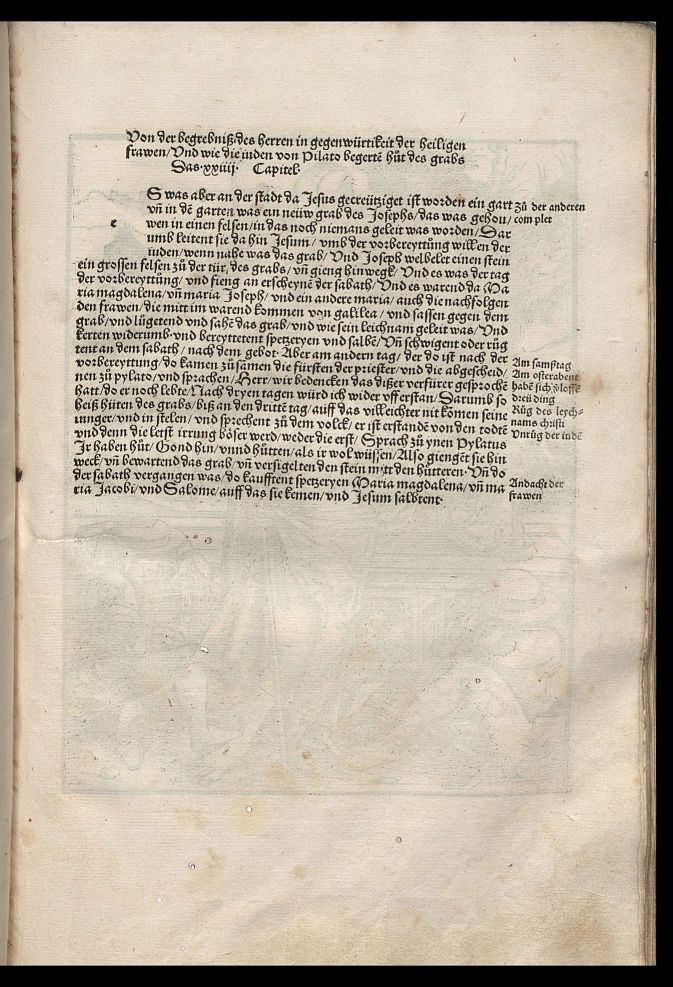 Von der begrebniß des herren in gegenwürtikeit der heiligen
frawen/ Vnd wie die iuden von Pilato begertẽ hüt des grabs
Das·xxiiij· Capitel·
e
S was aber an der stadt da Jesus gecreütziget ist worden ein gart
vñ in dẽ garten was ein neüw grab des Josephs/ das was gehou/
wen in einen felsen/ in das noch niemans geleit was worden/ Dar
umb leitent sie da hin Jesum/ vmb der vorbereyttüng willen der
iuden/ wenn nahe was das grab/ Vnd Joseph welbelet einen stein
ein grossen felsen zů der tür des grabs/ vñ gieng hinwegk/ Vnd es was der tag
der vorbereyttüng/ vnd fieng an erscheynẽ der sabath/ Vnd es warend da Ma
ria magdalena/ vñ maria Joseph/ vnd ein andere maria/ auch die nachfolgen
den frawen/ die mitt im warend kommen von galilea/ vnd sassen gegen dem
grab/ vnd lůgetend vnd sahẽ das grab/ vnd wie sein leichnam geleit was/ Vnd
kerten widerumb·vnd bereyttetent spetzeryen vnd salbẽ/ Vñ schwigent oder růg
tent an dem sabath/ nach dem gebot· Aber am andern tag/ der do ist nach der
vorbereyttung/ do kamen zůsamen die fürsten der priester/ vnd die abgescheid/
nen zů pylato/ vnd sprachen/ Herr/ wir bedencken das dißer verfürer gesprochẽ
hatt/ do er noch lebte/ Nach dryen tagen würd ich wider vff erstan/ Darumb so
heiß hüten des grabs/ biß an den drittẽ tag/ auff das villeichter nit kömen seine
iunger/ vnd in stelen/ vnd sprechent zů dem volck/ er ist erstandẽ von den todtẽ
vnd denn die letst irrung böser werd/ weder die erst/ Sprach zů ynen Pylatus
Jr haben hüt/ Gond hin/ vnnd hütten/ als ir wol wüssen/ Also giengẽt sie hin
weck/ vñ bewartend das grab/ vñ verfigelten den stein mytt den hütteren· Vñ do
der sabath vergangen was/ do kaufftent spetzeryen Maria magdalena/ vñ ma
ria Jacobi/ vnd Salome/ auff das sie kemen/ vnd Jesum salbtent·
zů der anderen
com plet
Am samßtag
Am osterabent
habẽ sich
dreü ding
Růg des leych-
nams christi
Vnrůg der iudẽ
Andacht der
frawen